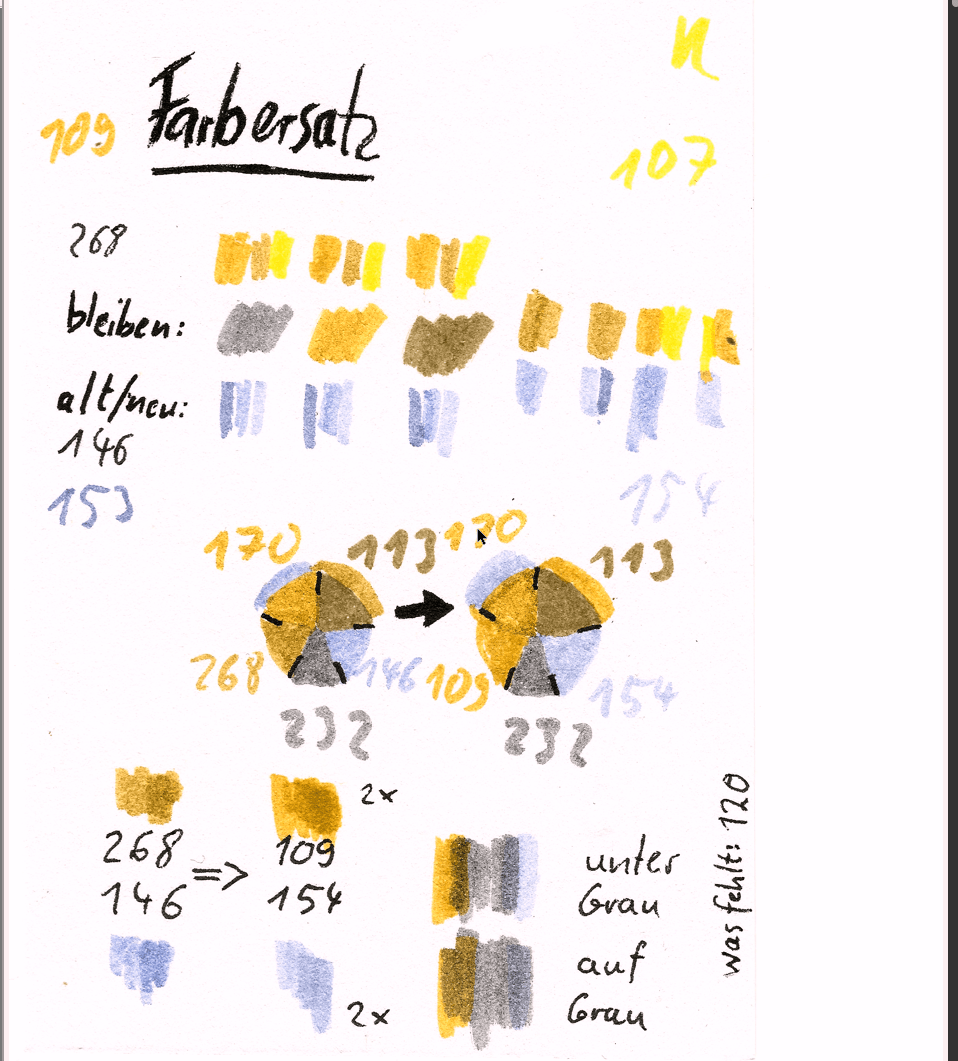 n
109 Farbersatz
107
268
bleiben:
alt/neu:
146
153
154
170 113 170 113
268 146 109 154
232 232
2x
268 => 109
146 154
2x
unter
Grau
auf
Grau
was fehlt: 120